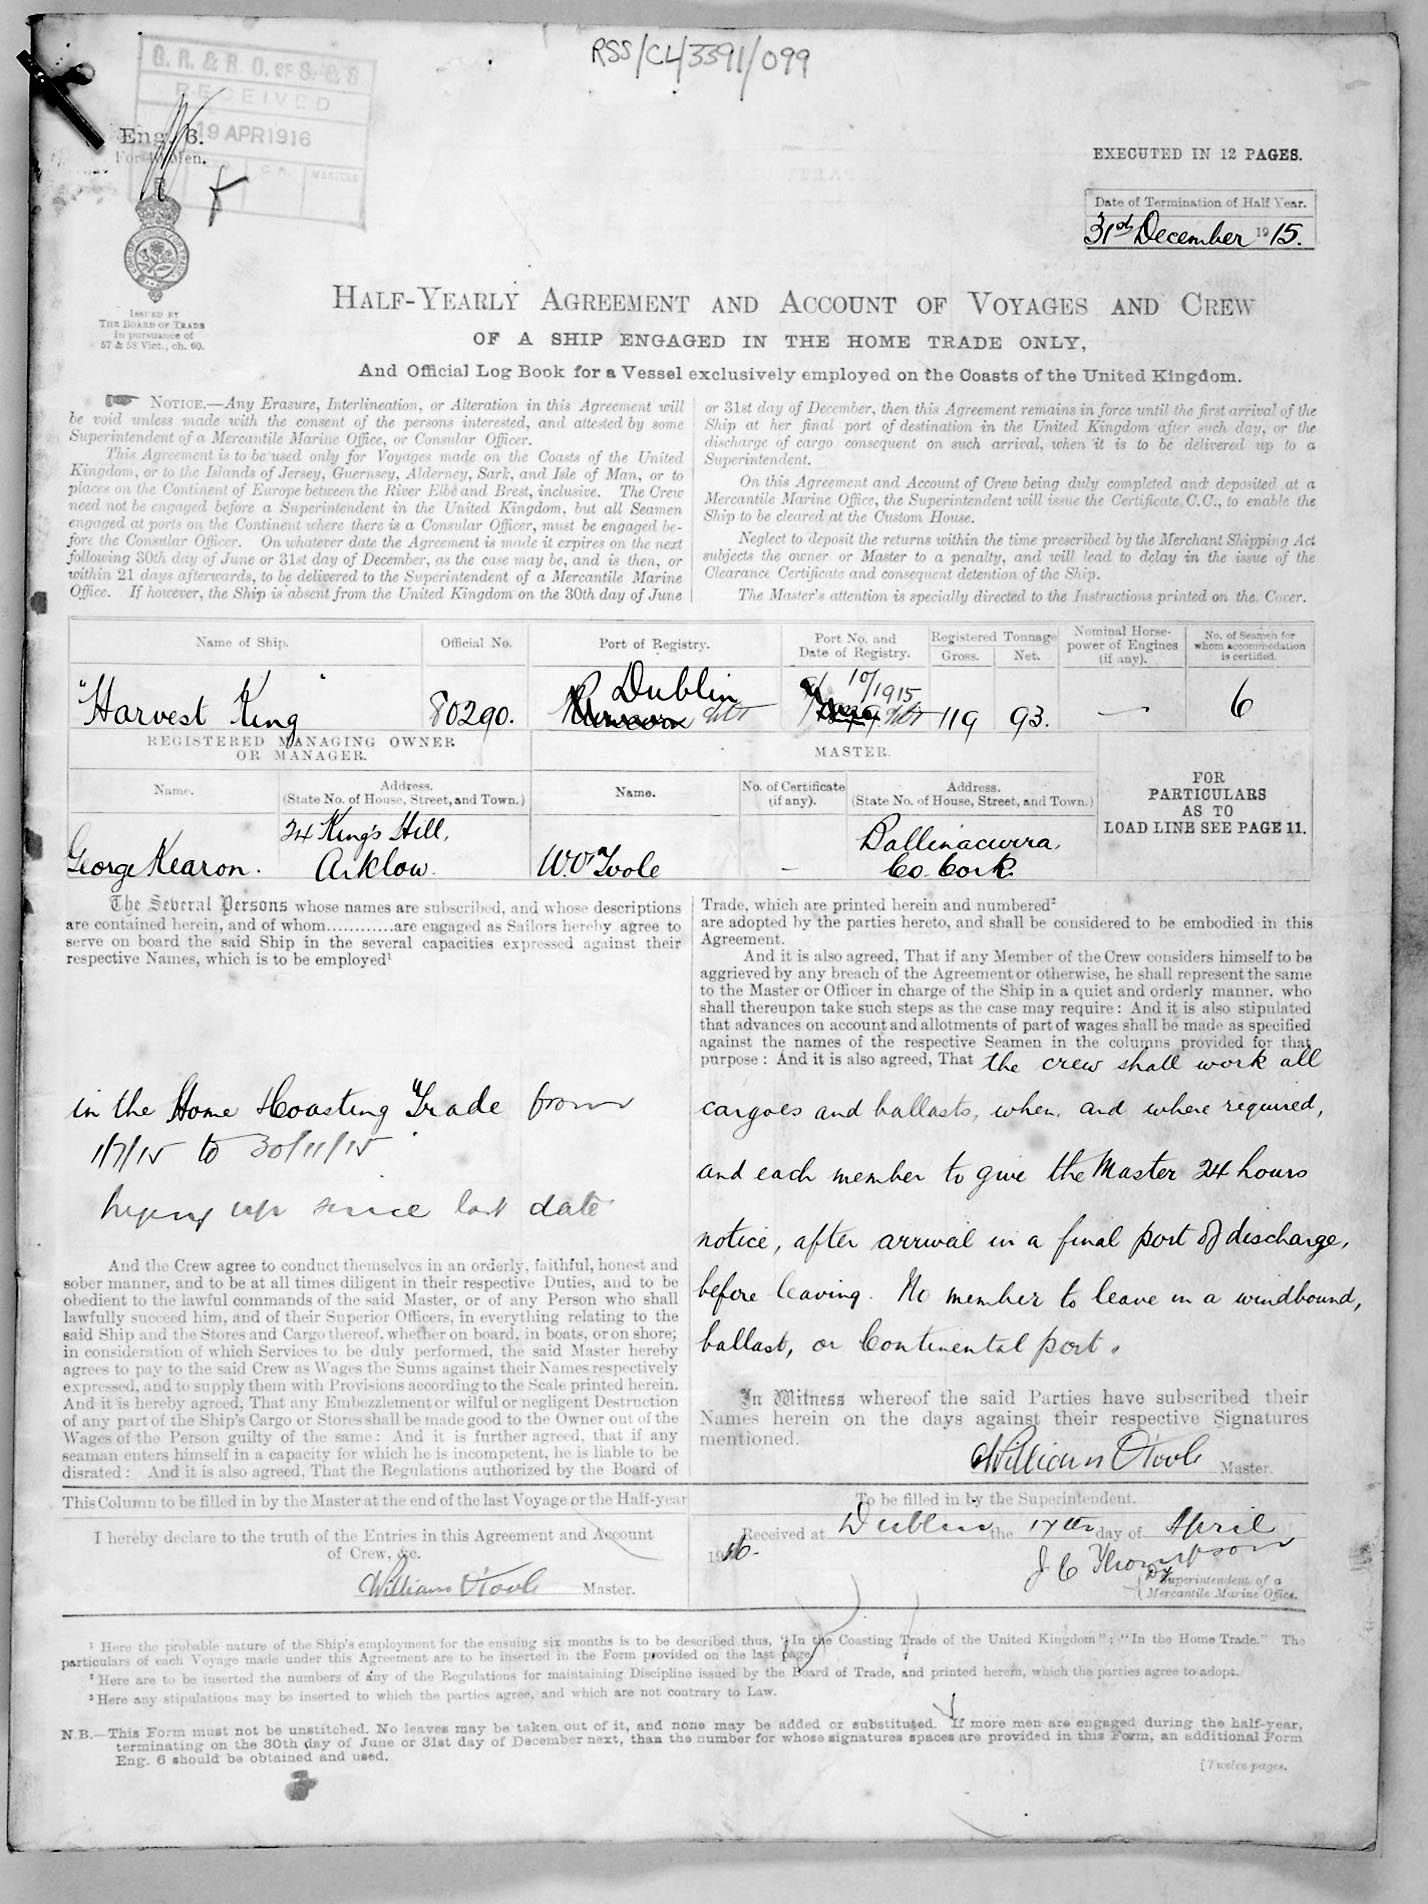 RSS/CL/3391/099
G. R. & R. O. OF S. & S.
RECEIVED
19 APR 1916
MASTERS
Eng. 6.
For 40 Men.
EXECUTED IN 12 PAGES.
Date of Termination of Half Year.
31st December 1915.
ISSUED BY
THE BOARD OF TRADE
in pursuance of
57 & 58 Vict., ch. 60.
HALF-YEARLY AGREEMENT AND ACCOUNT OF VOYAGES AND CREW
OF A SHIP ENGAGED IN THE HOME TRADE ONLY,
And Official Log Book for a Vessel exclusively employed on the Coasts of the United Kingdom.
NOTICE.—Any Erasure, Interlineation, or Alteration in this Agreement will
be void unless made with the consent of the persons interested, and attested by some
Superintendent of a Mercantile Marine Office, or Consular Officer.
This Agreement is to be used only for Voyages made on the Coasts of the United
Kingdom, or to the Islands of Jersey, Guernsey, Alderney, Sark, and Isle of Man, or to
places on the Continent of Europe between the River Elbe and Brest, inclusive. The Crew
need not be engaged before a Superintendent in the United Kingdom, but all Seamen
engaged at ports on the Continent where there is a Consular Officer, must be engaged be-
fore the Consular Officer. On whatever date the Agreement is made it expires on the next
following 30th day of June or 31st day of December, as the case may be, and is then, or
within 21 days afterwards, to be delivered to the Superintendent of a Mercantile Marine
Office. If however, the Ship is absent from the United Kingdom on the 30th day of June
or 31st day of December, then this Agreement remains in force until the first arrival of the
Ship at her final port of destination in the United Kingdom after such day, or the
discharge of cargo consequent on such arrival, when it is to be delivered up to a
Superintendent.
On this Agreement and Account of Crew being duly completed and deposited at a
Mercantile Marine Office, the Superintendent will issue the Certificate, C.C., to enable the
Ship to be cleared at the Custom House.
Neglect to deposit the returns within the time prescribed by the Merchant Shipping Act
subjects the owner or Master to a penalty, and will lead to delay in the issue of the
Clearance Certificate and consequent detention of the Ship.
The Master's attention is specially directed to the Instructions printed on the Cover.
Name of Ship. Official No. Port of Registry. Port No. and Date of Registry. Registered Tonnage Gross. Net. Nominal Horse-power of Engines (if any). No. of Seamen for whom accommodation is certified.
"Harvest King" 80290. Dublin Runcorn 10/1915 119 93. — 6
REGISTERED MANAGING OWNER
OR MANAGER.
MASTER.
Name. Address. (State No. of House, Street, and Town.) Name. No. of Certificate (if any). Address. (State No. of House, Street, and Town.)
FOR
PARTICULARS
AS TO
LOAD LINE SEE PAGE 11.
George Kearon. 24 King's Hill, Arklow. W. O'Toole - Ballinacurra, Co. Cork.
The Several Persons whose names are subscribed, and whose descriptions
are contained herein, and of whom............are engaged as Sailors hereby agree to
serve on board the said Ship in the several capacities expressed against their
respective Names, which is to be employed¹
in the Home & Coasting Trade from
1/7/15 to 30/11/15
lying up since last date
And the Crew agree to conduct themselves in an orderly, faithful, honest and
sober manner, and to be at all times diligent in their respective Duties, and to be
obedient to the lawful commands of the said Master, or of any Person who shall
lawfully succeed him, and of their Superior Officers, in everything relating to the
said Ship and the Stores and Cargo thereof, whether on board, in boats, or on shore;
in consideration of which Services to be duly performed, the said Master hereby
agrees to pay to the said Crew as Wages the Sums against their Names respectively
expressed, and to supply them with Provisions according to the Scale printed herein.
And it is hereby agreed, That any Embezzlement or wilful or negligent Destruction
of any part of the Ship's Cargo or Stores shall be made good to the Owner out of the
Wages of the Person guilty of the same: And it is further agreed, that if any
seaman enters himself in a capacity for which he is incompetent, he is liable to be
disrated: And it is also agreed, That the Regulations authorized by the Board of
Trade, which are printed herein and numbered²
are adopted by the parties hereto, and shall be considered to be embodied in this
Agreement.
And it is also agreed, That if any Member of the Crew considers himself to be
aggrieved by any breach of the Agreement or otherwise, he shall represent the same
to the Master or Officer in charge of the Ship in a quiet and orderly manner, who
shall thereupon take such steps as the case may require: And it is also stipulated
that advances on account and allotments of part of wages shall be made as specified
against the names of the respective Seamen in the columns provided for that
purpose: And it is also agreed, That the crew shall work all
cargoes and ballasts, when, and where required,
and each member to give the Master 24 hours
notice, after arrival in a final port of discharge,
before leaving. No member to leave in a windbound,
ballast, or Continental port.
In Witness whereof the said Parties have subscribed their
Names herein on the days against their respective Signatures
mentioned.
William O'Toole Master.
This Column to be filled in by the Master at the end of the last Voyage or the Half-year
I hereby declare to the truth of the Entries in this Agreement and Account
of Crew, &c.
William O'Toole Master.
To be filled in by the Superintendent.
Received at Dublin the 17th day of April
1916.
J C Thompson
Dy Superintendent of a
Mercantile Marine Office.
¹ Here the probable nature of the Ship's employment for the ensuing six months is to be described thus, "In the Coasting Trade of the United Kingdom"; "In the Home Trade." The
particulars of each Voyage made under this Agreement are to be inserted in the Form provided on the last page.
² Here are to be inserted the numbers of any of the Regulations for maintaining Discipline issued by the Board of Trade, and printed herein, which the parties agree to adopt.
³ Here any stipulations may be inserted to which the parties agree, and which are not contrary to Law.
N.B.—This Form must not be unstitched. No leaves may be taken out of it, and none may be added or substituted. If more men are engaged during the half-year,
terminating on the 30th day of June or 31st day of December next, than the number for whose signatures spaces are provided in this Form, an additional Form
Eng. 6 should be obtained and used.
[Twelve pages.